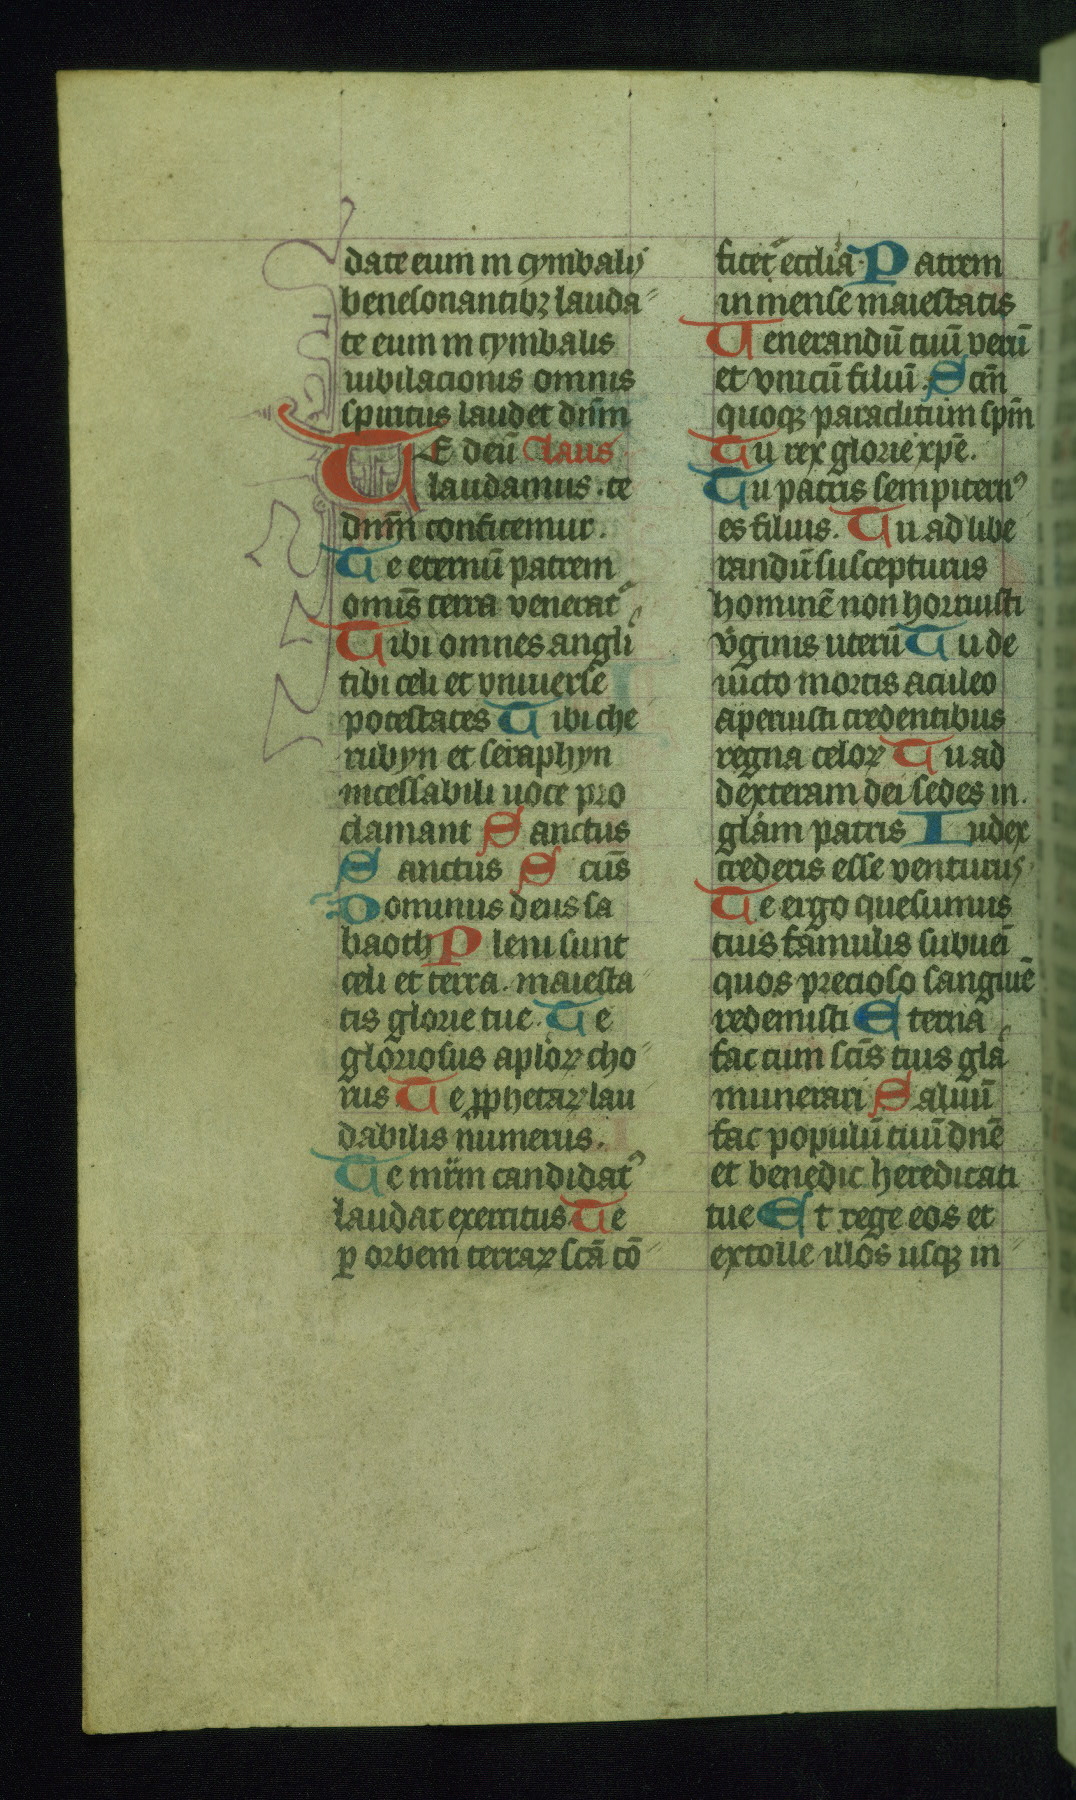 date eum in cymbalis
benesonantibꝫ lauda
te eum in cymbalis
iubilacionis omnis
spiritus laudet dn̄m
TE deū laus
laudamus . te
dn̄m confitemur .
Te eternū patrem
omīs terra venerat᷑
Tibi omnes angli
tibi celi et vniuerse
potestates Tibi che
rubyn et seraphyn
incessabili uoce pro
clamant Sanctus
Sanctus Sc̄us
Dominus deus sa
baoth Pleni sunt
celi et terra . maiesta
tis glorie tue . Te
gloriosus aplōꝝ cho
rus Te ꝓphetaꝝ lau
dabilis numerus .
Te mr̄im candidatꝰ
laudat exercitus Te
ꝑ orbem terraꝝ sc̄a cō
fitet᷑ eccliā . Patrem
inmense maiestatis
Uenerandū tuū verū
et vnicū filiū . Sc̄m
quoqꝫ paraclitum sp̄m
Tu rex glorie xp̄e .
Tu patris sempiternꝰ
es filius . Tu ad libe
randū suscepturus
hominē non horruisti
v̓ginis uterū Tu de
uicto mortis aculeo
aperuisti credentibus
regna celoꝝ Tu ad
dexteram dei sedes in .
glām patris Iudex
crederis esse venturus
Te ergo quesumus
tuis famulis subueī
quos precioso sanguīe
redemisti Eterna
fac cum sc̄is tuis glā
munerari Saluū
fac populū tuū dn̄e
et benedic hereditati
tue Et rege eos et
extolle illos usqꝫ in